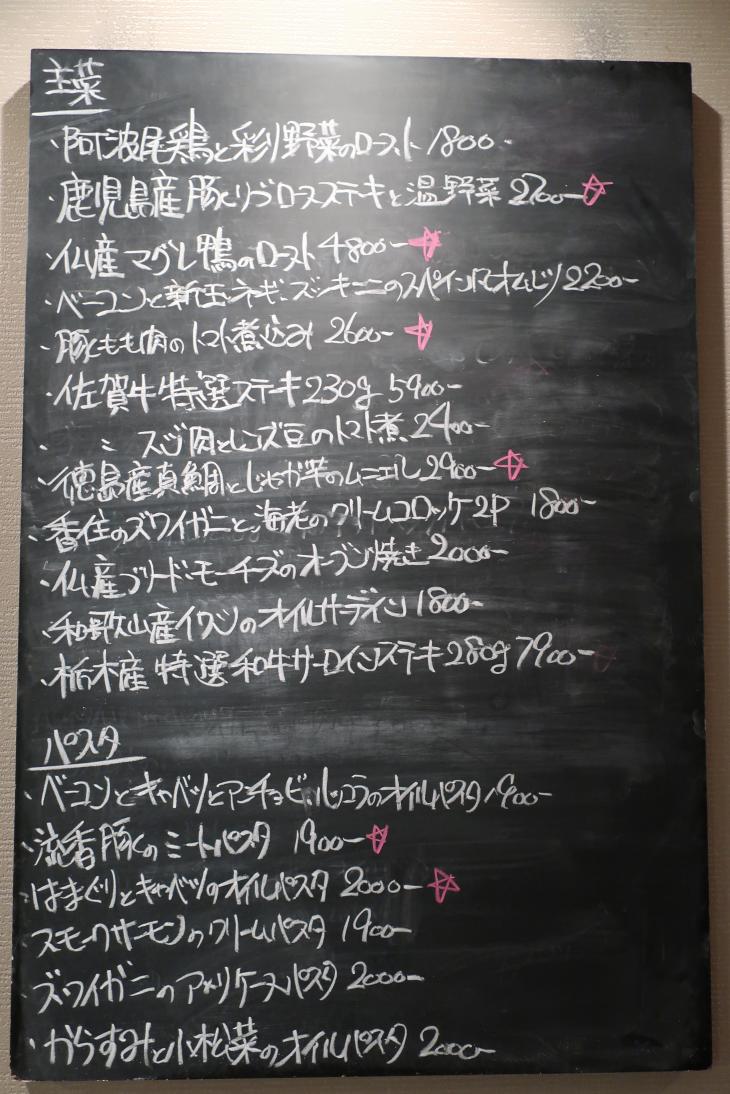 主菜
・阿波尾鶏と彩り野菜のロースト 1800-
・鹿児島産豚リブロースステーキと温野菜 2700- ☆
・仏産マグレ鴨のロースト 4800- ☆
・ベーコンと新玉ネギ、ズッキーニのスペイン風オムレツ 2200-
・豚もも肉のトマト煮込み 2600- ☆
・佐賀牛特選ステーキ230g 5900-
・ 〃 スジ肉とレンズ豆のトマト煮 2400-
・徳島産真鯛とじゃが芋のムニエル 2900- ☆
・香住のズワイガニと海老のクリームコロッケ2P 1800-
・仏産ブリ・ド・モーチーズのオーブン焼き 2000-
・和歌山産イワシのオイルサーディン 1800-
・栃木産特選和牛サーロインステーキ280g 7900-
パスタ
・ベーコンとキャベツとアンチョビ、ルッコラのオイルパスタ 1900-
・流香豚のミートパスタ 1900- ☆
・はまぐりとキャベツのオイルパスタ 2000- ☆
・スモークサーモンのクリームパスタ 1900-
・ズワイガニのアメリケーヌパスタ 2000-
・からすみと小松菜のオイルパスタ 2000-